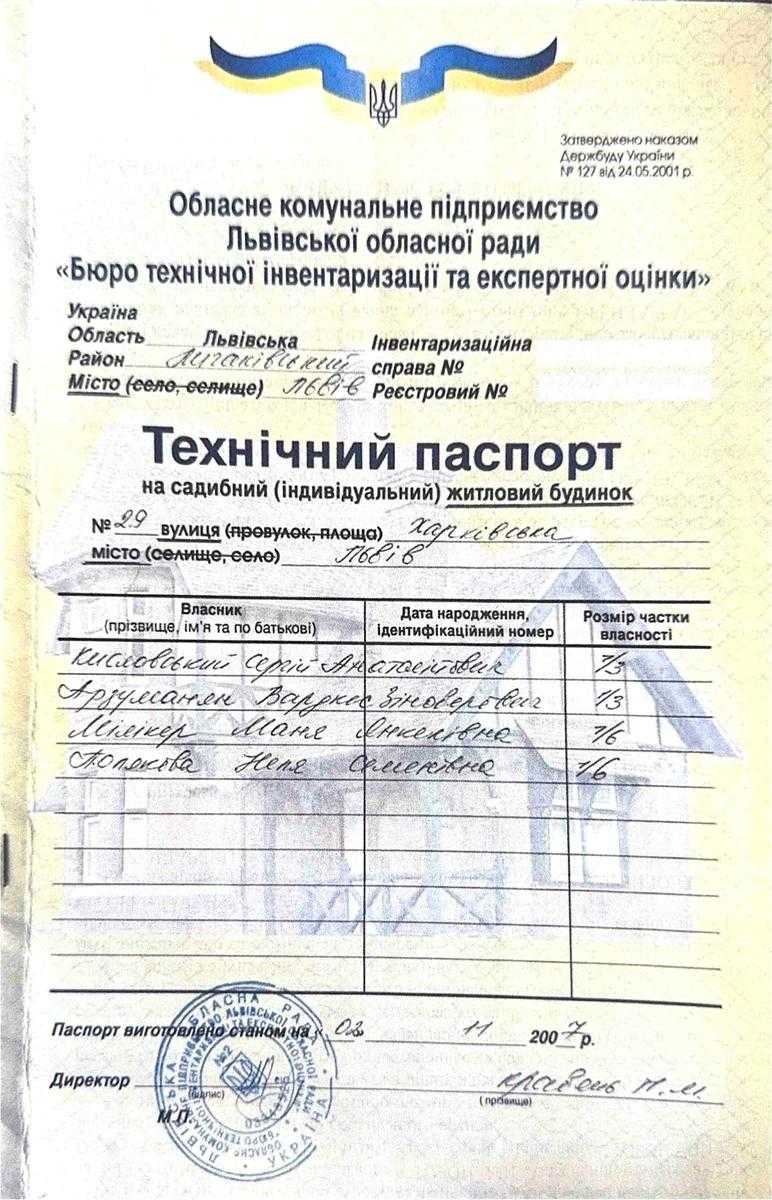 Затверджено наказом
Держбуду України
№ 127 від 24.05.2001 р.
Обласне комунальне підприємство
Львівської обласної ради
«Бюро технічної інвентаризації та експертної оцінки»
Україна
Область Львівська Інвентаризаційна
Район Личаківський справа №
Місто (село, селище) Львів Реєстровий №
Технічний паспорт
на садибний (індивідуальний) житловий будинок
№ 29 вулиця (провулок, площа) Харківська
місто (селище, село) Львів
Власник Дата народження, Розмір частки
(прізвище, ім'я та по батькові) ідентифікаційний номер власності
Кисловський Сергій Анатолійович 1/3
Арзуманян Вардкес Зіноверович 1/3
Мілікер Маня Янкелівна 1/6
Полякова Неля Семенівна 1/6
Паспорт виготовлено станом на « 02 11 2007 р.
Директор Кравець М.М.
(підпис) (прізвище)
М.П.